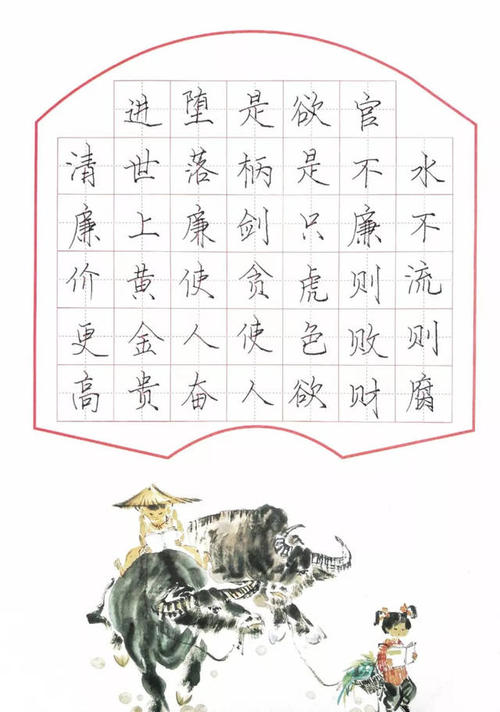 水不流则腐
官不廉则败财
欲是只虎色欲
是柄剑贪使人
堕落廉使人奋
进世上黄金贵
清廉价更高